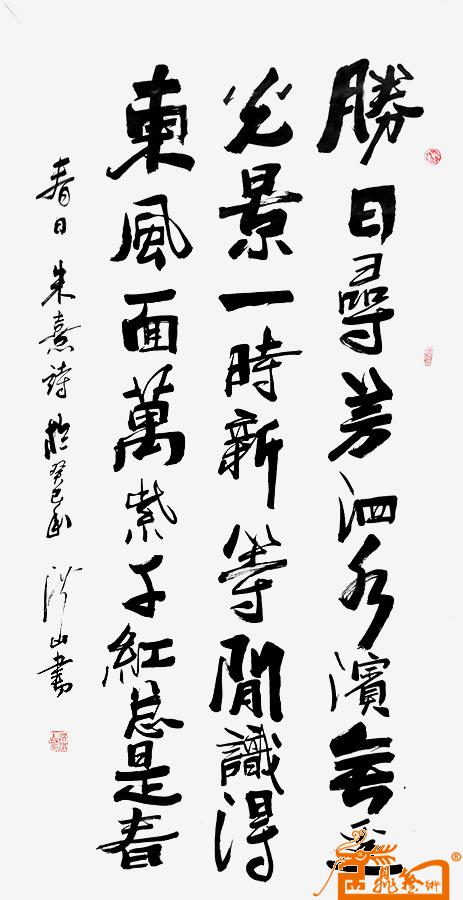 勝日尋芳泗水濱無邊
光景一時新等閒識得
東風面萬紫千紅总是春
春日 朱熹詩 於癸巳 山書